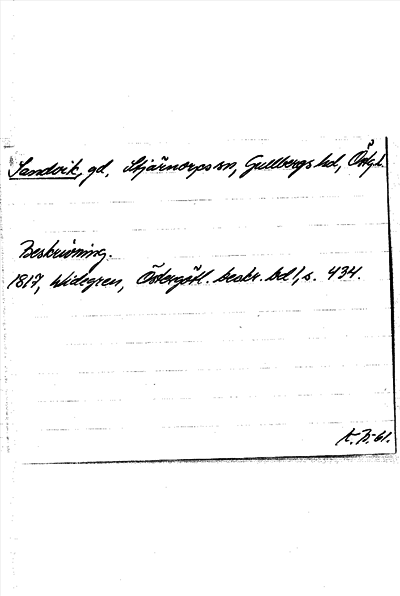 Sandvik, gd, Stjärnorps sn, Gullbergs hd, Östg.l.
Beskrivning.
1817, Widegren, Östergötl. beskr. bd 1, s. 434.